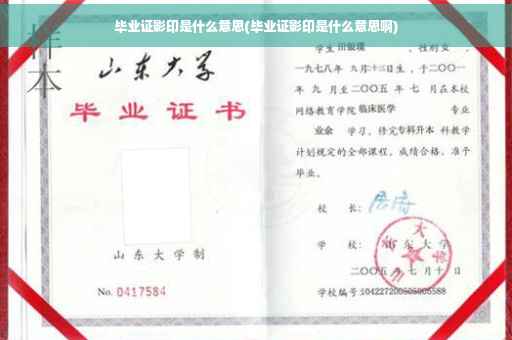 毕业证影印是什么意思(毕业证影印是什么意思啊)
样本
山东大学
毕业证书
山东大学制
No. 0417584
学生 性别女，
一九七八年 九月十二日生，于二〇〇一
年 九 月至二〇〇五 年 七 月在本校
网络教育学院 临床医学 专业
业余 学习，修完专科升本 科教学
计划规定的全部课程，成绩合格，准予
毕业。
校 长：
学 校： 山东大学
二〇〇五 年 七 月 十 日
学校编号:104227200505005588